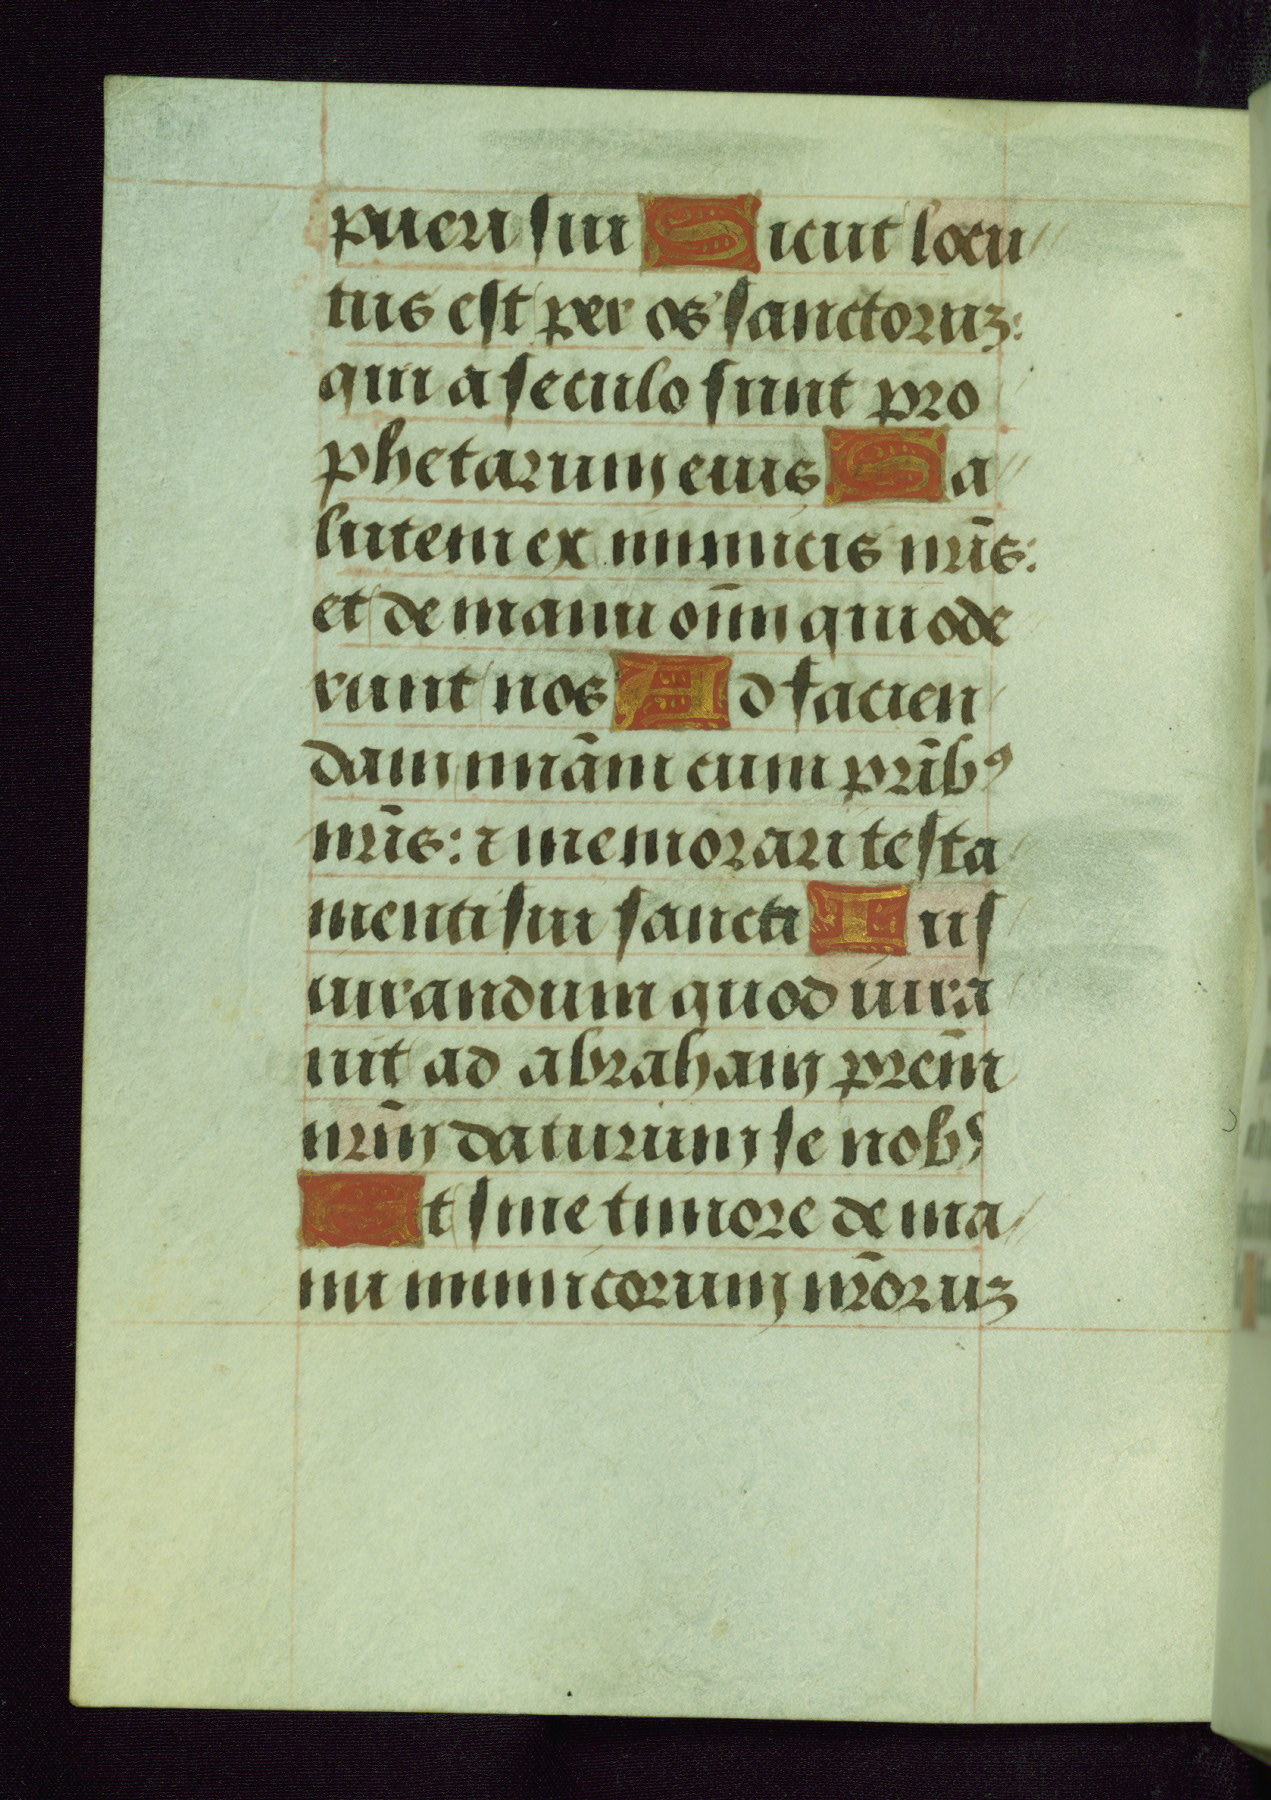 pueri sui Sicut locu//
tus est per os sanctoruz:
qui a seculo sunt pro
phetarum eius Sa//
lutem ex inimicis nr̄is:
et de manu oīm qui ode
runt nos Ad facien
dam mīam cum pr̄ibꝰ
nr̄is: ⁊ memorari testa
menti sui sancti Ius
iurandum quod iura
uit ad abraham prēm
nr̄m daturum se nobꝭ
Et sine timore de ma//
nu inimicorum nr̄oruz